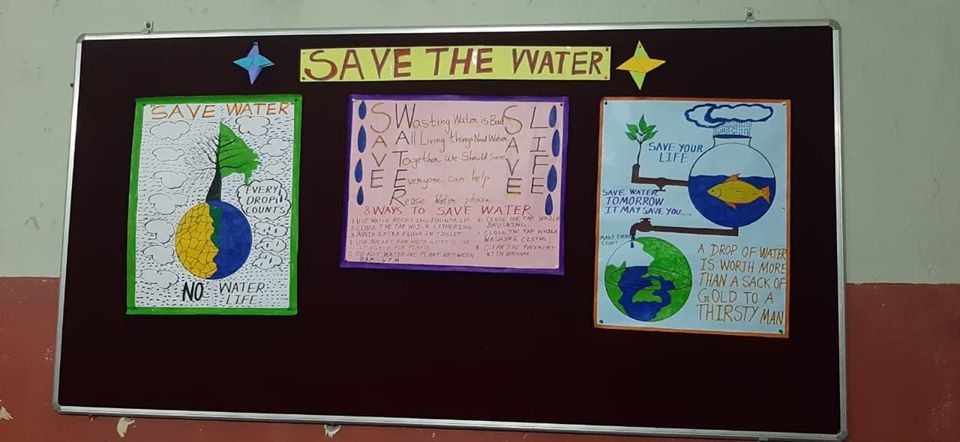 SAVE THE WATER
SAVE WATER
EVERY
DROP
COUNTS
NO WATER
LIFE
SAVE
WATER
SAVE
LIFE
Wasting Water is Bad
All Living things Need Water
Together We Should Save
Everyone can help
Reuse Water please
8 WAYS TO SAVE WATER
USE WATER RECYCLING FOUNTAIN
2 CLOSE THE TAP WHILE
AVOID EXTRA FLUSH IN TOILET
USE
AGAIN FOR PLANTS
DO NOT WATER THE PLANT BETWEEN
CLOSE THE TAP WHILE
BRUSHING
CLOSE THE TAP WHILE
WASHING CLOTHS
CLEAN THE PAVEMENT
WITH BROOM
SAVE YOUR
LIFE
SAVE WATER
TOMORROW
IT MAY SAVE YOU....
MAKE EVERY
COUNT
A DROP OF WATER
IS WORTH MORE
THAN A SACK OF
GOLD TO A
THIRSTY MAN